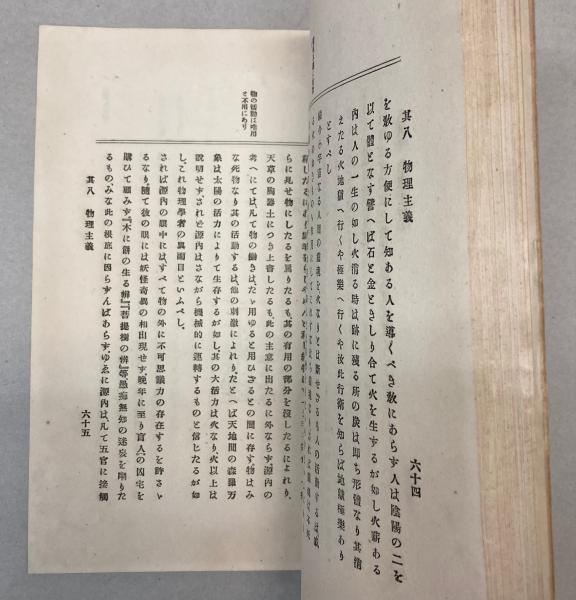 其八　物理主義
六十四
を敎ゆる方便にして知ある人を導くべき敎にあらず人は陰陽の二を
以て體となす譬へば石と金ときしり合て火を生ずるが如し火薪ある
內は人の一生の如し火消る時は跡に殘る所の
えたる火地獄へ行くや極樂へ行くや汝此行術を知らば地獄極樂あり
とすべし
物の活動は唯用
と不用にあり
らに見せ物にしたるを罵りたるも、其の有用の部分を沒したるによれり、
天草の陶器土につき上書したるも、此の主意に出たるに外ならず、源內の
考へにては、凡て物の働きは、たゞ用ゆると用ひざるとの間に存す物はみ
な死物なり其の活動するは、他の刺激によれり、たとへば天地間の森羅万
象は太陽の活力によりて生存するが如し、其の大活力は火なり火以上は
說明せず、されど源內はさながら機械的に運轉するものと信じたるが如
し、これ物理學者の眞面目といふべし。
されば源內の眼中には、すべて物の外に不可思議力の存在するを許さゞ
るなり、隨て彼の眼には妖怪奇異の相出現せず、晩年に至り盲人の凶宅を
購ひて顧みず『木に餠の生る辨』『菩提樹の辨』等愚痴無知の迷妄を嘲りた
るものみな此の根底に因らずんばあらず、ゆゑに源內は、凡て五官に接觸
其八　物理主義
六十五